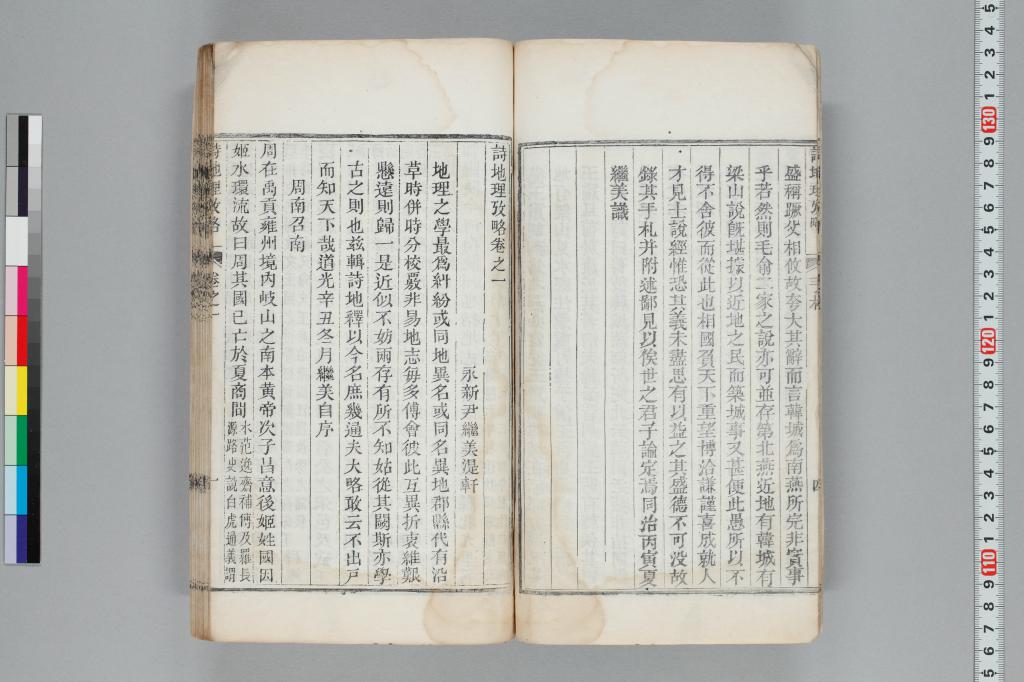 盛稱蹶父相攸故夸大其辭而言韓城爲南燕所完非實事
乎若然則毛翁二家之說亦可並存第北燕近地有韓城有
梁山說旣堪據以近地之民而築城事又甚便此愚所以不
得不舍彼而從此也相國負天下重望博洽謙謹喜成就人
才見士說經惟恐其義未盡思有以益之其盛德不可没故
錄其手札并附述鄙見以俟世之君子論定焉同治丙寅夏
繼美識
詩地理攷略卷之一
永新尹繼美湜軒
地理之學最爲糾紛或同地異名或同名異地郡縣代有沿
革時併時分校覈非易地志每多傅會彼此互異折衷維艱
懸遠則歸一是近似不妨兩存有所不知姑從其闕斯亦學
古之則也兹輯詩地釋以今名庶幾通夫大略敢云不出戶
而知天下哉道光辛丑冬月繼美自序
周南召南
周在禹貢雍州境內岐山之南本黄帝次子昌意後姬姓國因
姬水環流故曰周其國已亡於夏商間
水范逸齋補傳及羅長
源路史說白虎通義謂
詩地理攷略
卷之一
一